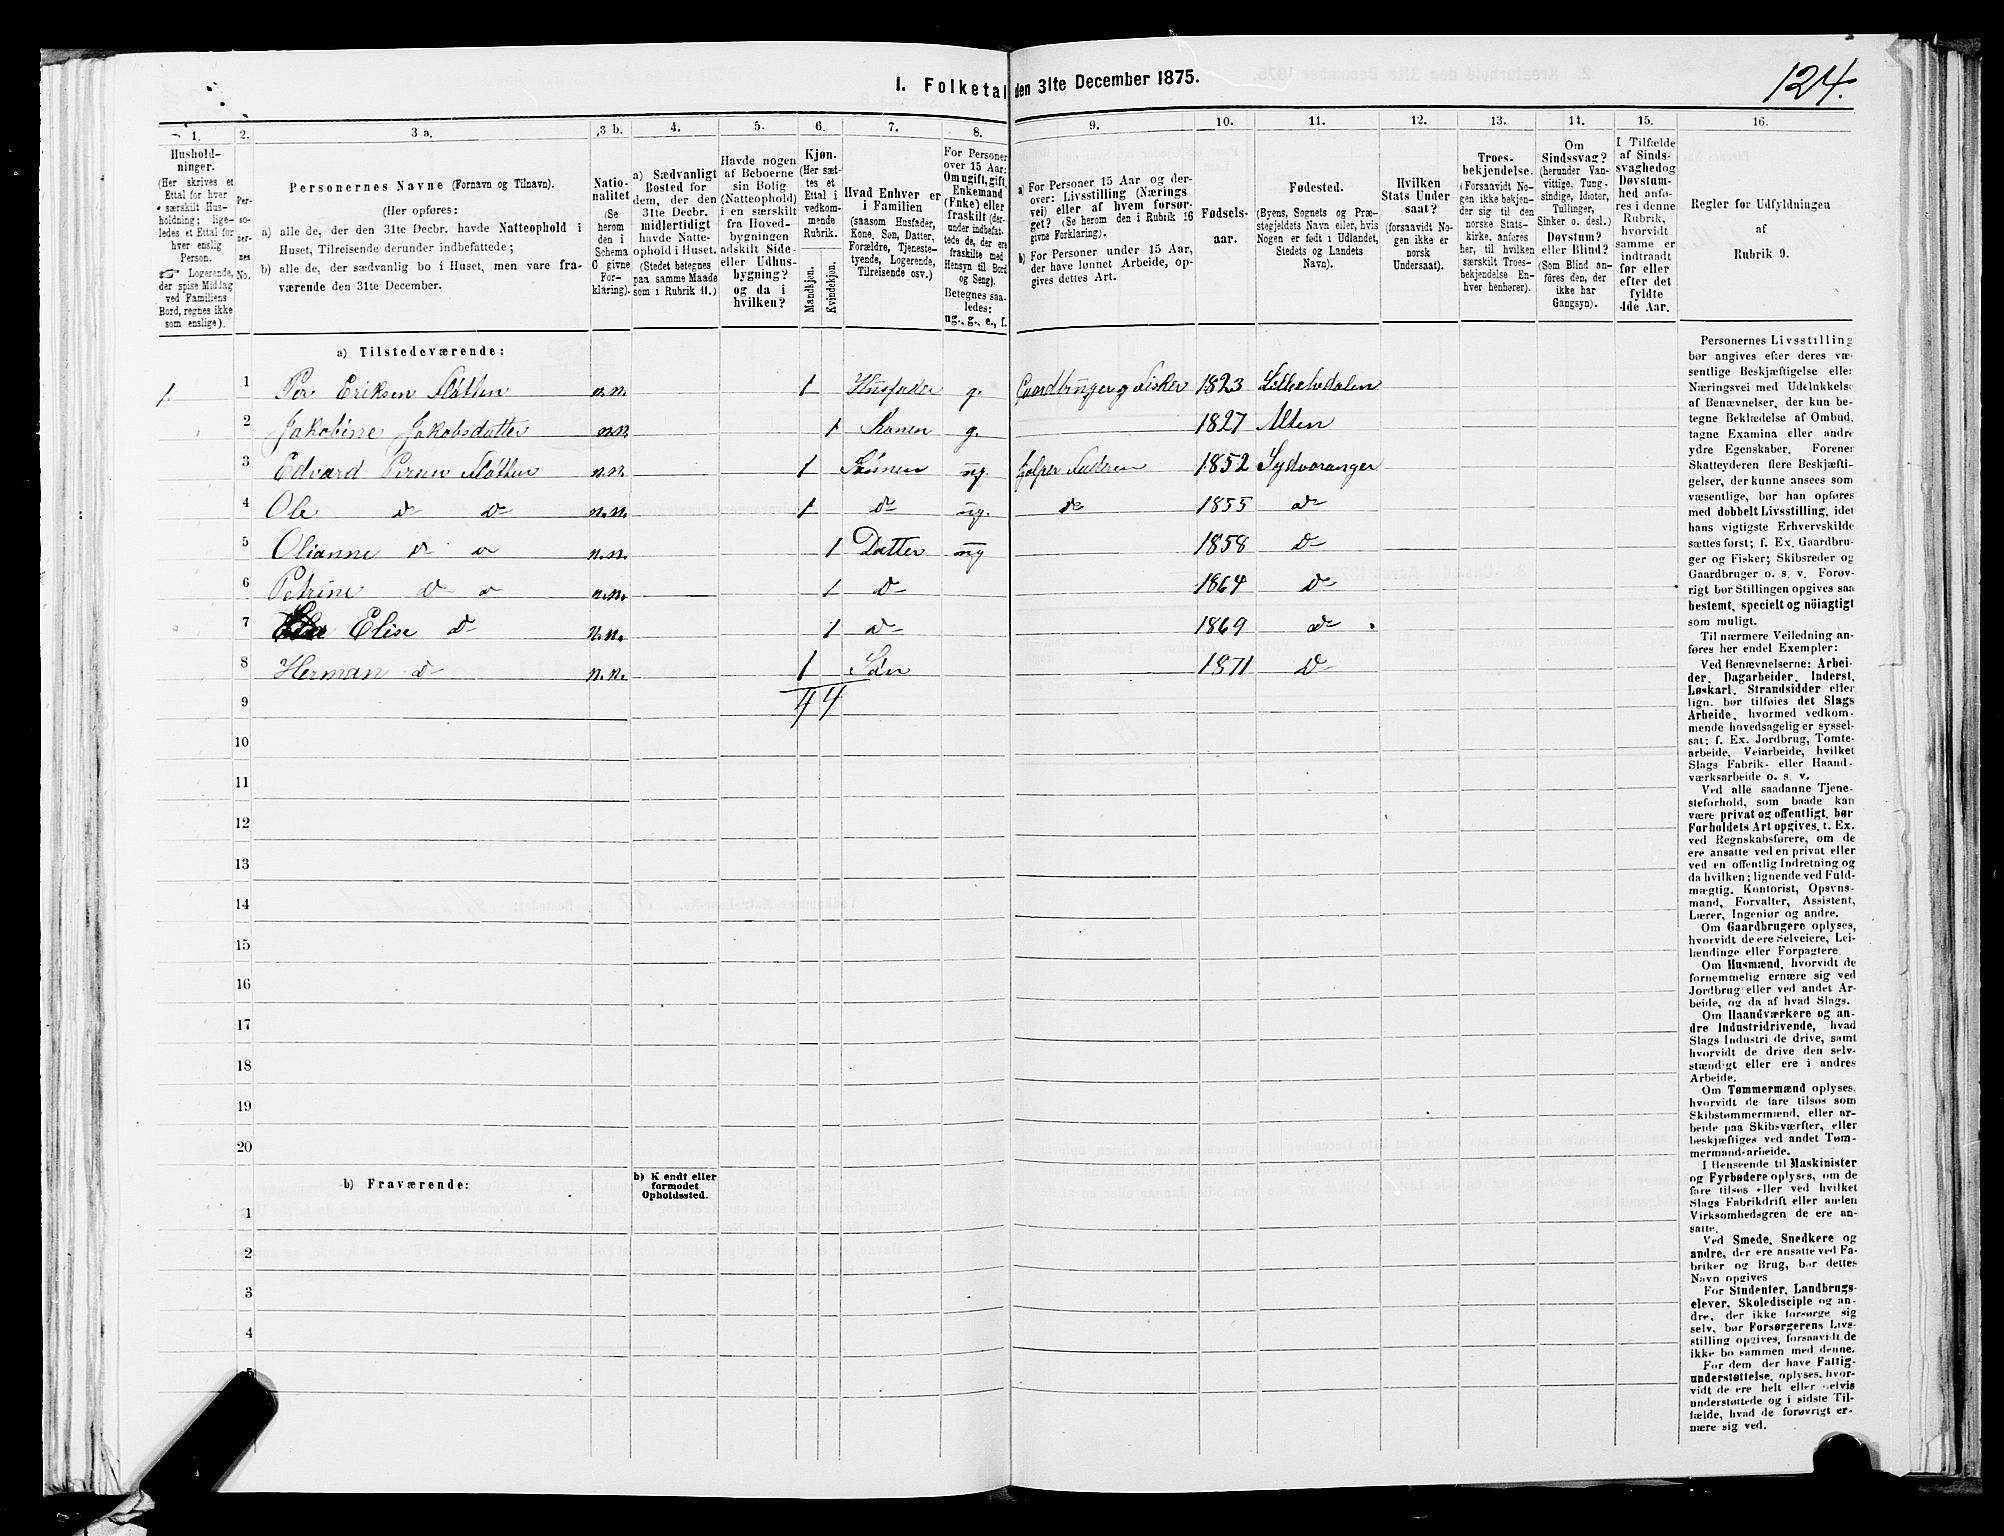 I. Folketal den 31te December 1875.
124.
1.
2.
3 a.
3 b.
4.
5.
6.
7.
8.
9.
10.
11.
12.
13.
14.
15.
16.
Hushold-
ninger.
(Her skrives et
Ettal for hver
særskilt Hus-
holdning; lige-
ledes et Ettal for
hver enslig
Person.
☞ Logerende,
der spise Middag
ved Familiens
Bord, regnes ikke
som enslige).
Per-
so-
ner-
nes
No.
Personernes Navne (Fornavn og Tilnavn).
(Her opføres:
a) alle de, der den 31te Decbr. havde Natteophold i
Huset, Tilreisende derunder indbefattede;
b) alle de, der sædvanlig bo i Huset, men vare fra-
værende den 31te December.
Natio-
nalitet
(Se
herom
den i
Schema
C givne
For-
klaring).
a) Sædvanligt
Bosted for
dem, der den
31te Decbr.
midlertidigt
havde Natte-
ophold i Huset.
(Stedet betegnes
paa samme Maade
som i Rubrik 11.)
Havde nogen
af Beboerne
sin Bolig
(Natteophold)
i en særskilt
fra Hoved-
bygningen
adskilt Side-
eller Udhus-
bygning?
og da i
hvilken?
Kjøn.
(Her sæt-
tes et
Ettal i
vedkom-
mende
Rubrik.
Mandkjøn.
Kvindekjøn.
Hvad Enhver er
i Familien
(saasom Husfader,
Kone, Søn, Datter,
Forældre, Tjeneste-
tyende, Logerende,
Tilreisende osv.)
For Personer
over 15 Aar:
Om ugift, gift,
Enkemand
(Enke) eller
fraskilt (der-
under indbefat-
tede de, der ere
fraskilte med
Hensyn til Bord
og Seng).
Betegnes saa-
ledes:
ug., g., e., f.
a) For Personer 15 Aar og der-
over: Livsstilling (Nærings
vei) eller af hvem forsør-
get? (Se herom den i Rubrik 16
givne Forklaring).
b) For Personer under 15 Aar,
der have lønnet Arbeide, op-
gives dettes Art.
Fødsels-
aar.
Fødested.
(Byens, Sognets og Præ-
stegjeldets Navn eller, hvis
Nogen er født i Udlandet,
Stedets og Landets
Navn).
Hvilken
Stats Under
saat?
(forsaavidt No-
gen ikke er
norsk
Undersaat).
Troes-
bekjendelse.
(Forsaavidt No-
gen ikke bekjen-
der sig til den
norske Stats-
kirke, anføres
her, til hvilken
særskilt Troes-
bekjendelse En-
hver henhører).
Om
Sindssvag?
(herunder Van-
vittige, Tung-
sindige, Idioter,
Tullinger,
Sinker o. desl.)
Døvstum?
eller Blind?
(Som Blind an-
føres den, der
ikke har
Gangsyn).
I Tilfælde
af Sinds-
svaghed og
Døvstum-
hed anfø-
res i denne
Rubrik,
hvorvidt
samme er
indtraadt
før eller
efter det
fyldte
4de Aar.
Regler for Udfyldningen
af
Rubrik 9.
a) Tilstedeværende:
1 1 Per Eriksen Slotten n.n. 1 Husfader g. Gaardbruger og Fisker 1823 Lilleelvdalen
2 Jakobine Jakobsdatter n.n. 1 Konen g. 1827 Alten
3 Edvard Persen Slotten n.n. 1 Sønnen ug. hjelper Faderen 1852 Sydvaranger
4 Ole do do n.n. 1 do ug. do 1855 do
5 Olianne do do n.n. 1 Datter ug 1858 do
6 Petrine do do n.n. 1 do 1864 do
7 Elise do n.n. 1 do 1869 do
8 Herman do n.n. 1 Søn 1871 do
9 4 4
10
11
12
13
14
15
16
17
18
19
20
b) Fraværende:
b) Kjendt eller
formodet
Opholdssted.
1
2
3
4
5
Personernes Livsstilling
bør angives efter deres væ-
sentlige Beskjæftigelse eller
Næringsvei med Udelukkelse
af Benævnelser, der kun be-
tegne Beklædelse af Ombud,
tagne Examina eller andre
ydre Egenskaber. Forener
Skatteyderen flere Beskjæfti-
gelser, der kunne ansees som
væsentlige, bør han opføres
med dobbelt Livsstilling, idet
hans vigtigste Erhvervskilde
sættes først; f. Ex. Gaardbru-
ger og Fisker; Skibsreder og
Gaardbruger o. s. v. Forøv-
rigt bør Stillingen opgives saa
bestemt, specielt og nöiagtigt
som muligt.
Til nærmere Veiledning an-
føres her endel Exempler:
Ved Benævnelserne: Arbei-
der, Dagarbeider, Inderst,
Løskarl, Strandsidder eller
lign. bør tilføies det Slags
Arbeide, hvormed vedkom-
mende hovedsagelig er syssel-
sat; f. Ex. Jordbrug, Tomte-
arbeide, Veiarbeide, hvilket
Slags Fabrik- eller Haand-
værksarbeide o. s. v.
Ved alle saadanne Tjene-
steforhold, som baade kan
være privat og offentligt, bør
Forholdets Art opgives, t. Ex.
ved Regnskabsførere, om de
ere ansatte ved en privat eller
ved en offentlig Indretning og
da hvilken; lignende ved Fuld-
mægtig, Kontorist, Opsyns-
mand, Forvalter, Assistent,
Lærer, Ingeniør og andre.
Om Gaardbrugere oplyses,
hvorvidt de ere Selveiere, Lei-
lændinge eller Forpagtere.
Om Husmænd, hvorvidt de
fornemmelig ernære sig ved
Jordbrug eller ved andet Ar-
beide, og da af hvad Slags.
Om Haandværkere og an-
dre Industridrivende, hvad
Slags Industri de drive, samt
hvorvidt de drive den selv-
stændigt eller ere i andres
Arbeide.
Om Tømmermænd oplyses,
hvorvidt de fare tilsøs som
Skibstømmermænd, eller ar-
beide paa Skibsværfter, eller
beskjæftiges ved andet Tøm-
mermand-arbeide.
I Henseende til Maskinister
og Fyrbødere oplyses, om de
fare tilsøs eller ved hvilket
Slags Fabrikdrift eller anden
Virksomhedsgren de ere an-
satte.
Ved Smede, Snedkere og
andre, der ere ansatte ved Fa-
briker og Brug, bør dettes
Navn opgives
For Studenter, Landbrugs-
elever, Skoledisciple og an-
dre, der ikke forsørge sig
selv, bør Forsørgerens Livs-
stilling opgives, forsaavidt de
ikke bo sammen med denne.
For dem der have Fattig-
understøttelse, oplyses, hvor-
vidt de ere helt eller delvis
understøttede og i sidste Til-
fælde, hvad de forøvrigt er-
nære sig ved.